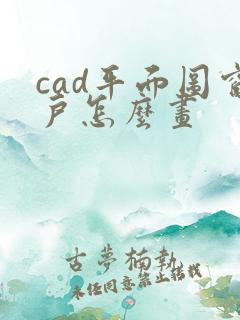 cad平面图窗
户怎麽畫
古夢楠執
未经同意禁止转载